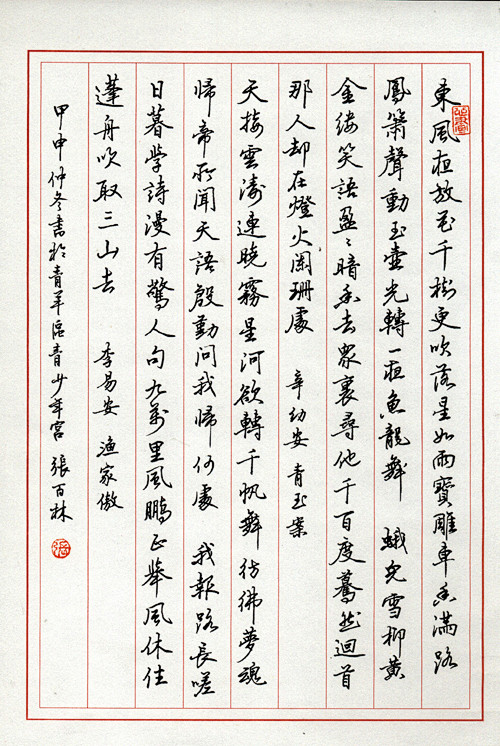 東風夜放花千樹更吹落星如雨寶雕車香滿路
鳳簫聲動玉壺光轉一夜魚龍舞 蛾兒雪柳黃
金縷笑語盈〻暗香去眾裏尋他千百度驀然迴首
那人却在燈火闌珊處 辛幼安 青玉案
天接雲濤連曉霧星河欲轉千帆舞彷彿夢魂
歸帝所聞天語殷勤問我歸何處 我報路長嗟
日暮學詩漫有驚人句九萬里風鵬正舉風休住
蓬舟吹取三山去 李易安 漁家傲
甲申仲冬書於青羊區青少年宮 張百林